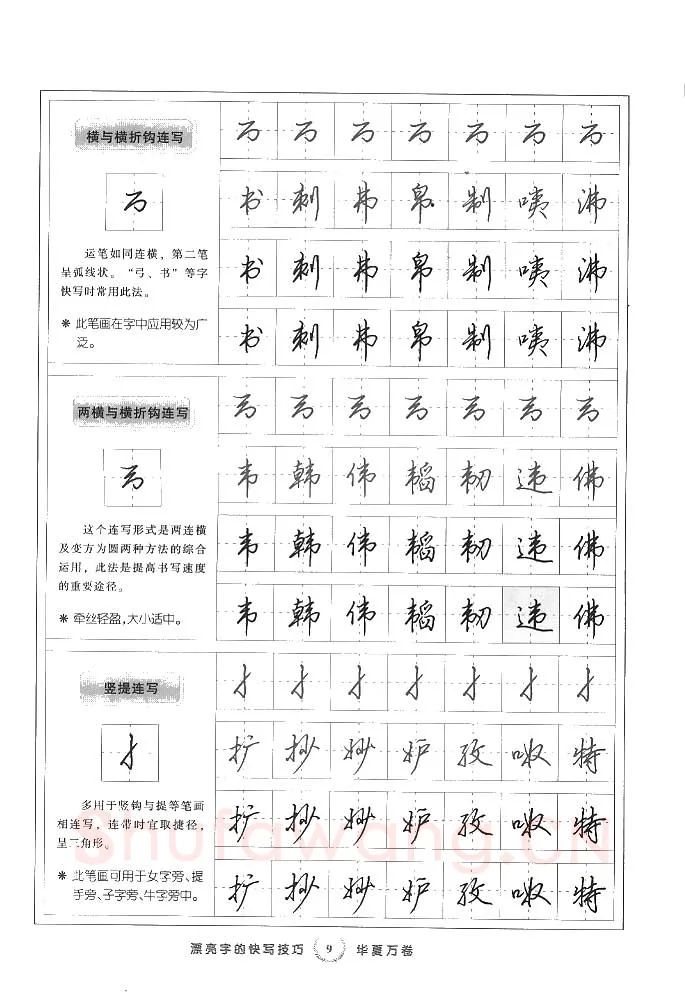 横与横折钩连写
运笔如同连横，第二笔
呈弧线状。“弓、书”等字
快写时常用此法。
※ 此笔画在字中应用较为广
泛。
书 刺 帛 制 咦 沸
书 刺 帛 制 咦 沸
书 刺 帛 制 咦 沸
两横与横折钩连写
这个连写形式是两连横
及变方为圆两种方法的综合
运用，此法是提高书写速度
的重要途径。
※ 牵丝轻盈，大小适中。
韦 韩 伟 韬 韧 违 佛
韦 韩 伟 韬 韧 违 佛
韦 韩 伟 韬 韧 违 佛
竖提连写
多用于竖钩与提等笔画
相连写，连带时宜取捷径，
呈三角形。
※ 此笔画可用于女字旁、提
手旁、子字旁、牛字旁中。
扩 抄 妙 妒 孜 特
扩 抄 妙 妒 孜 特
扩 抄 妙 妒 孜 特
Shufawang.CN
漂亮字的快写技巧 9 华夏万卷